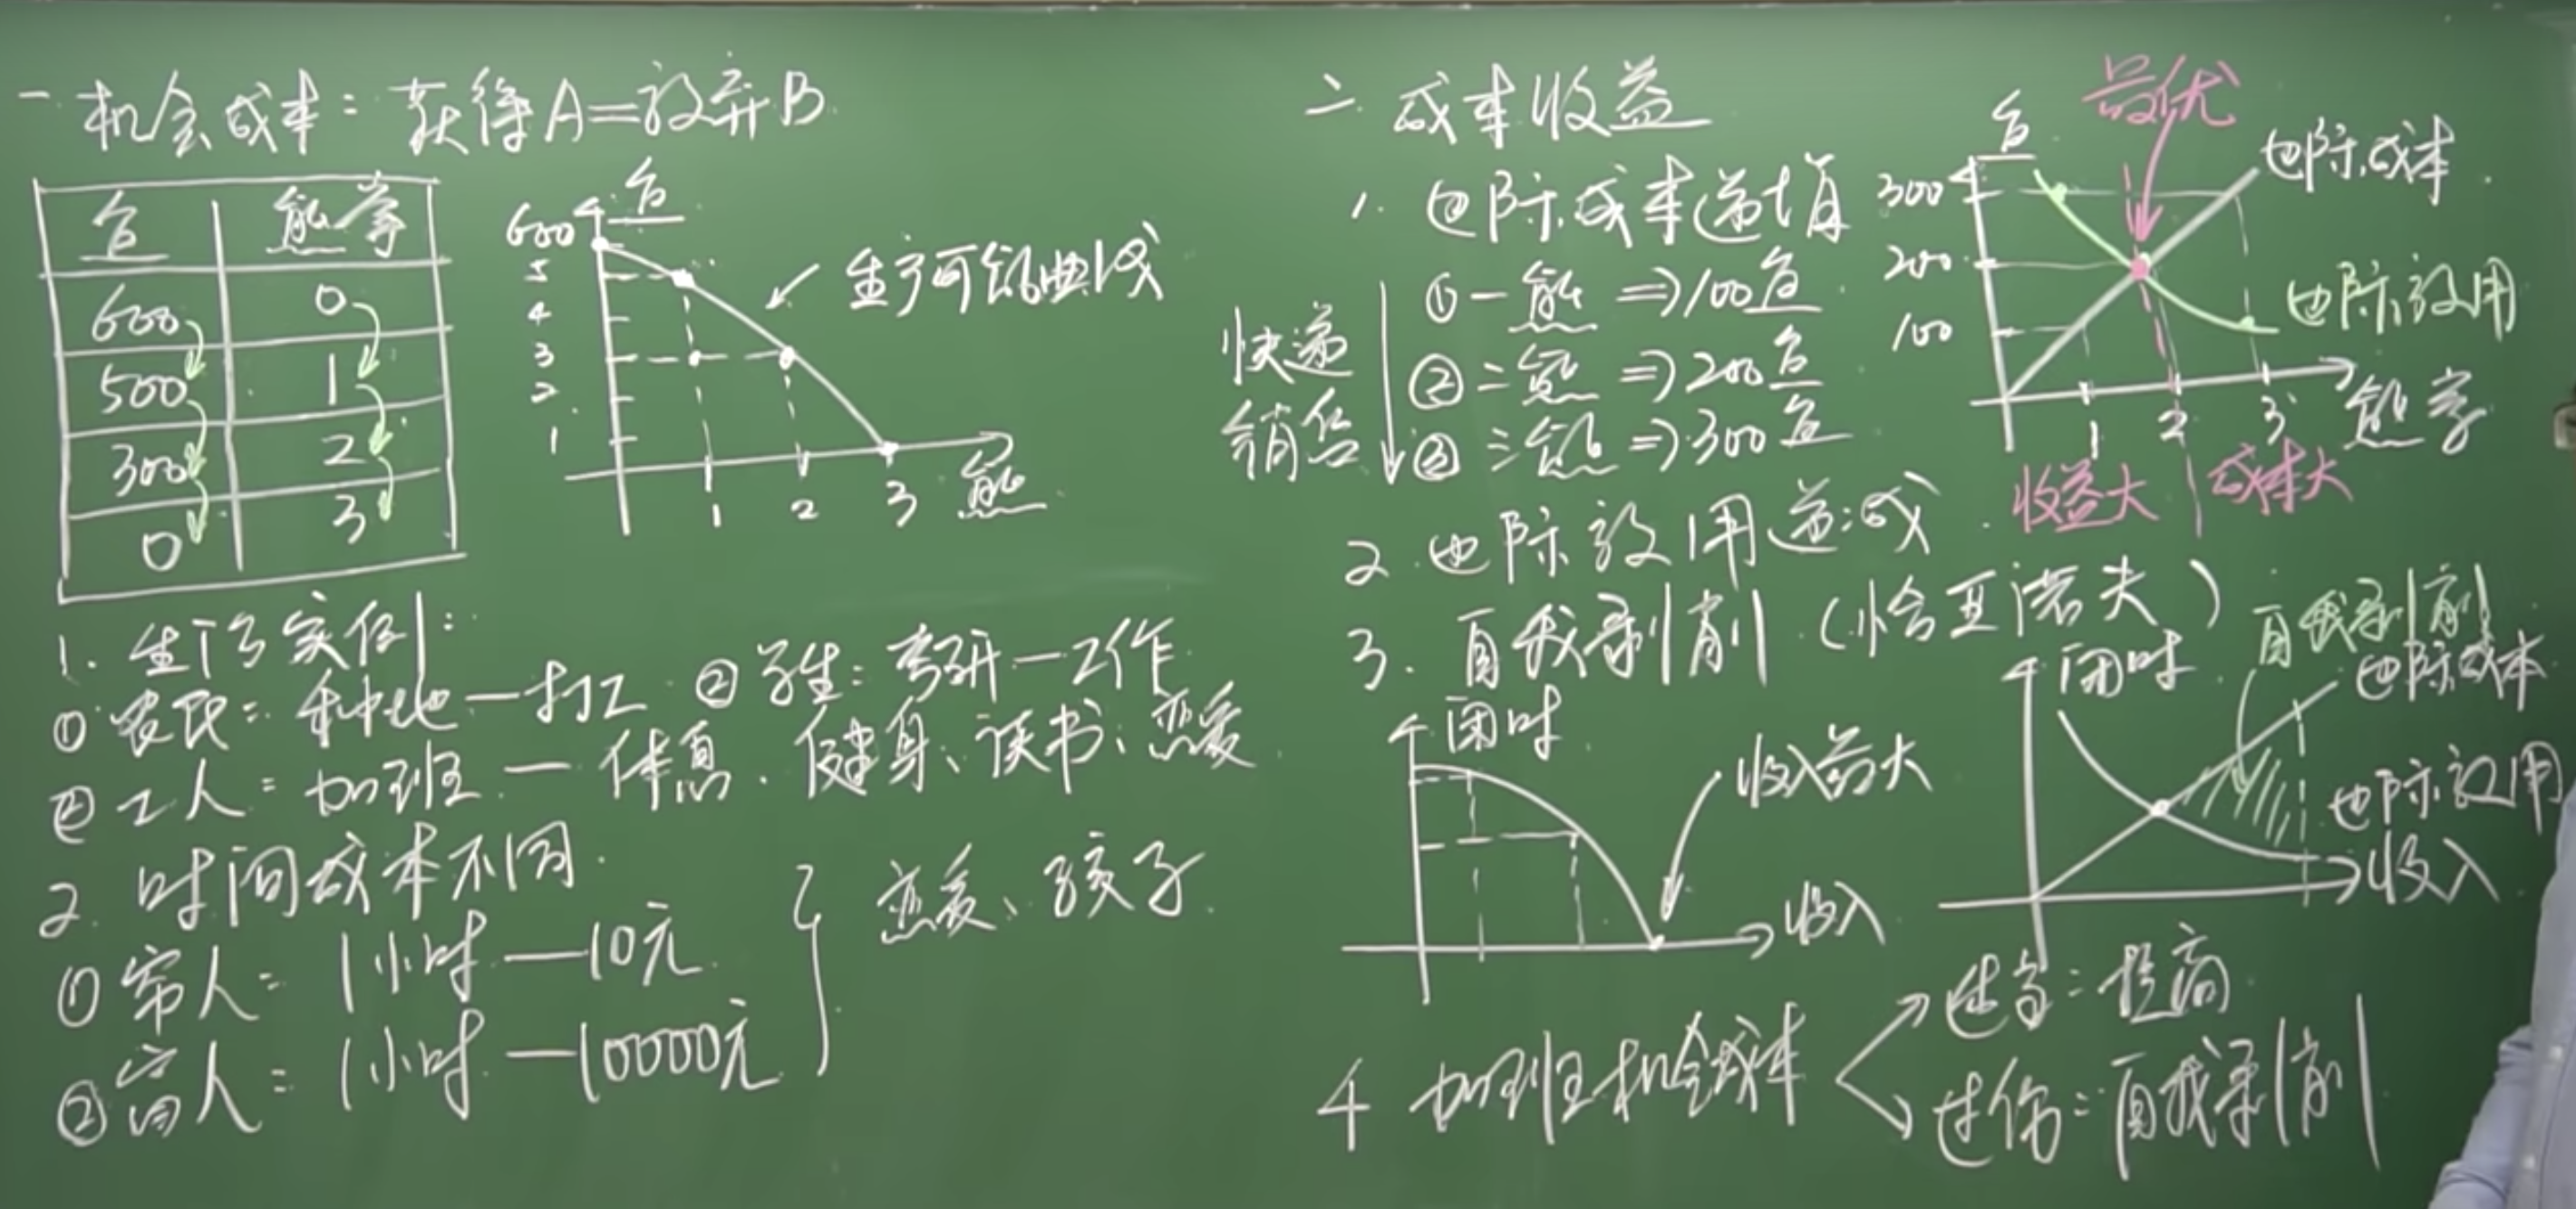 一. 机会成本：获得A=放弃B
鱼 熊掌
600 0
500 1
300 2
0 3
鱼
600
5
4
3
2
1
生产可能曲线
1 2 3 熊
1. 生活实例：
① 农民：种地—打工 ② 学生：考研—工作
② 工人：加班 — 休息、健身、读书、恋爱
2. 时间成本不同
① 穷人：1小时—10元
② 富人：1小时—10000元
恋爱、孩子
二. 成本收益
1. 边际成本递增
① 一熊 ⇒ 100鱼
② 二熊 ⇒ 200鱼
③ 三熊 ⇒ 300鱼
快递
销售
鱼
最优
边际成本
300
200
100
边际效用
1 2 3 熊掌
收益大 成本大
2. 边际效用递减
3. 自我剥削（恰亚诺夫）
闲时
收入最大
收入
闲时
自我剥削
边际成本
边际效用
收入
4 加班机会成本
过高：提高
过低：自我剥削